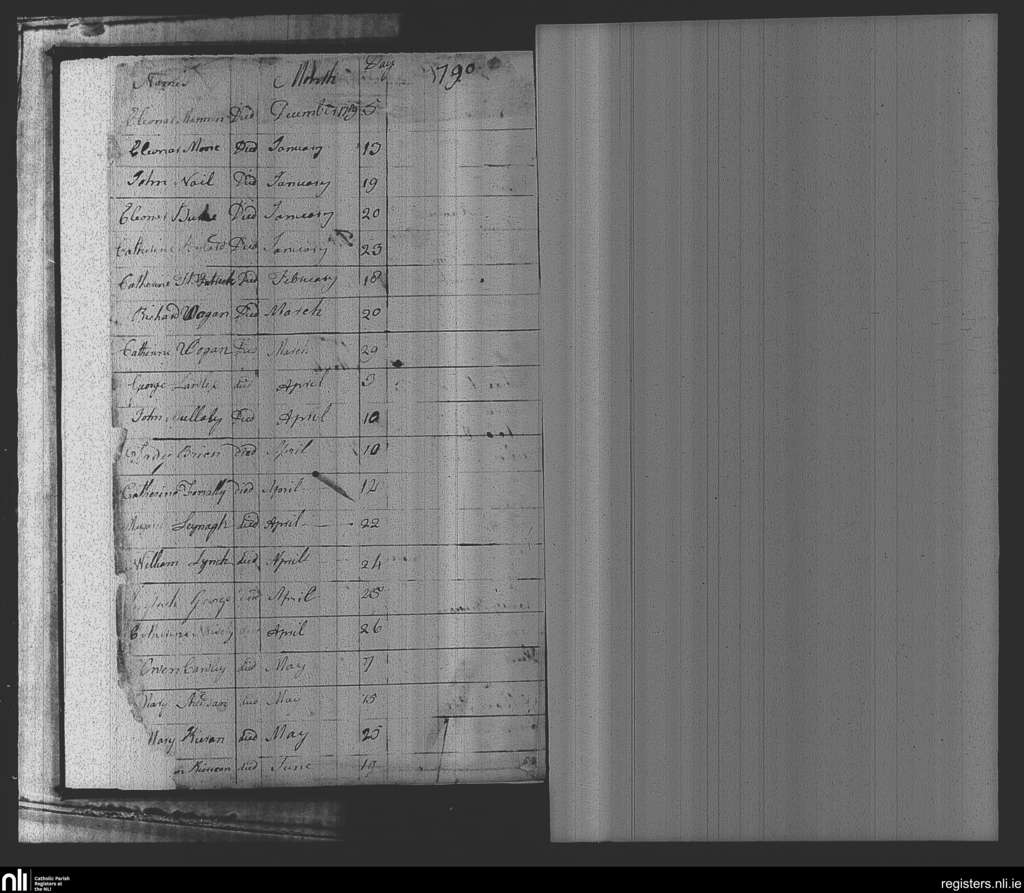 Names Month Day 1790
Eleonar Died December 1789 5
Eleonar Moore Died January 13
John Nail Died January 19
Eleonar Burke Died January 20
Catherine Died January 23
Catherine Died February 18
Richard Wogan Died March 20
Catherine Wogan Died March 29
George Lawler died April 3
John Died April 10
Brien died April 10
Catherine died April 12
Seynagh died April 22
William Lynch died April 24
George died April 25
Catherine April 26
Owen died May 7
Mary died May 15
Mary Kieran died May 25
died June 19
nli Catholic Parish
Registers at
the NLI
registers.nli.ie